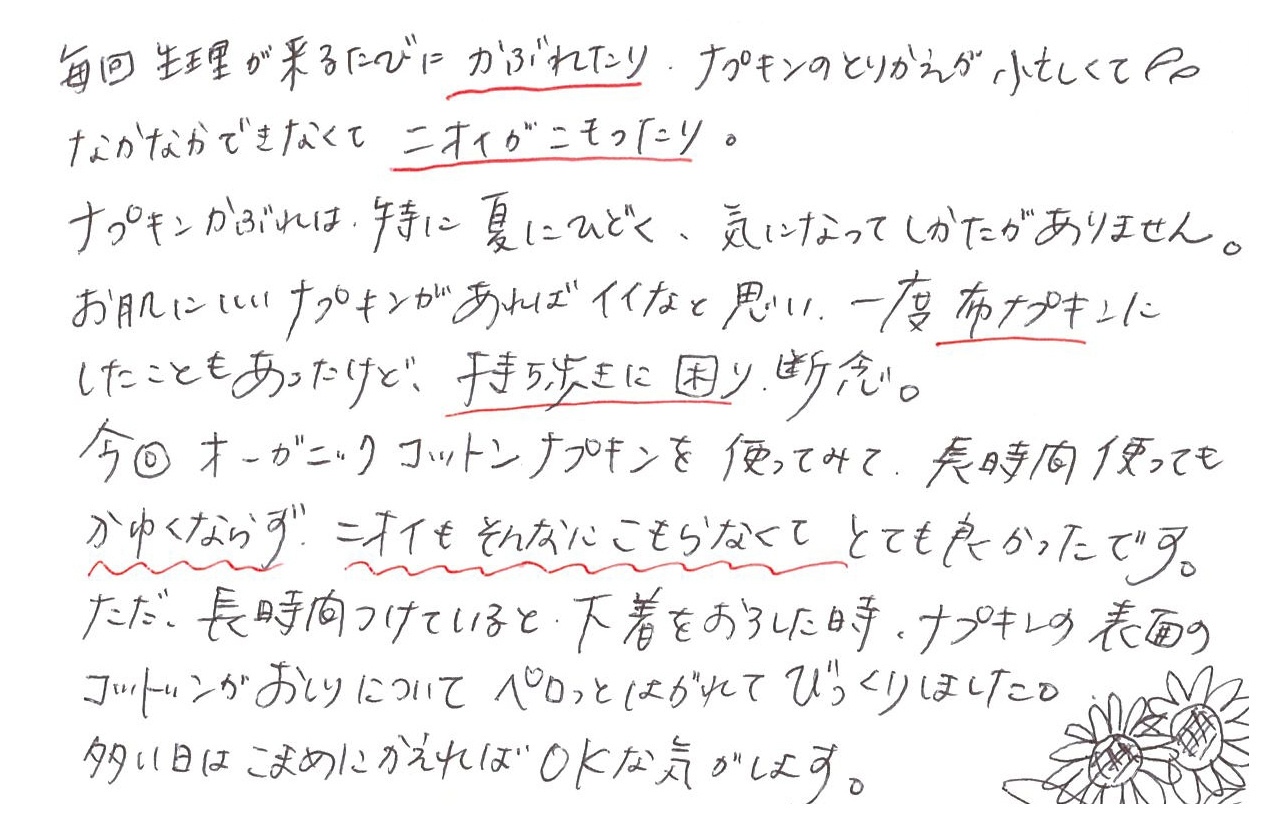 毎回生理が来るたびにかぶれたり、ナプキンのとりかえが忙しくて
なかなかできなくてニオイがこもったり。
ナプキンかぶれは、特に夏にひどく、気になってしかたがありません。
お肌にいいナプキンがあればイイなと思い、一度布ナプキンに
したこともあったけど、持ち歩きに困り、断念。
今回オーガニックコットンナプキンを使ってみて、長時間使っても
かゆくならず、ニオイもそんなにこもらなくてとても良かったです。
ただ、長時間つけていると、下着をおろした時、ナプキンの表面の
コットンがおしりについてペロっとはがれてびっくりしました。
多い日はこまめにかえればOKな気がします。